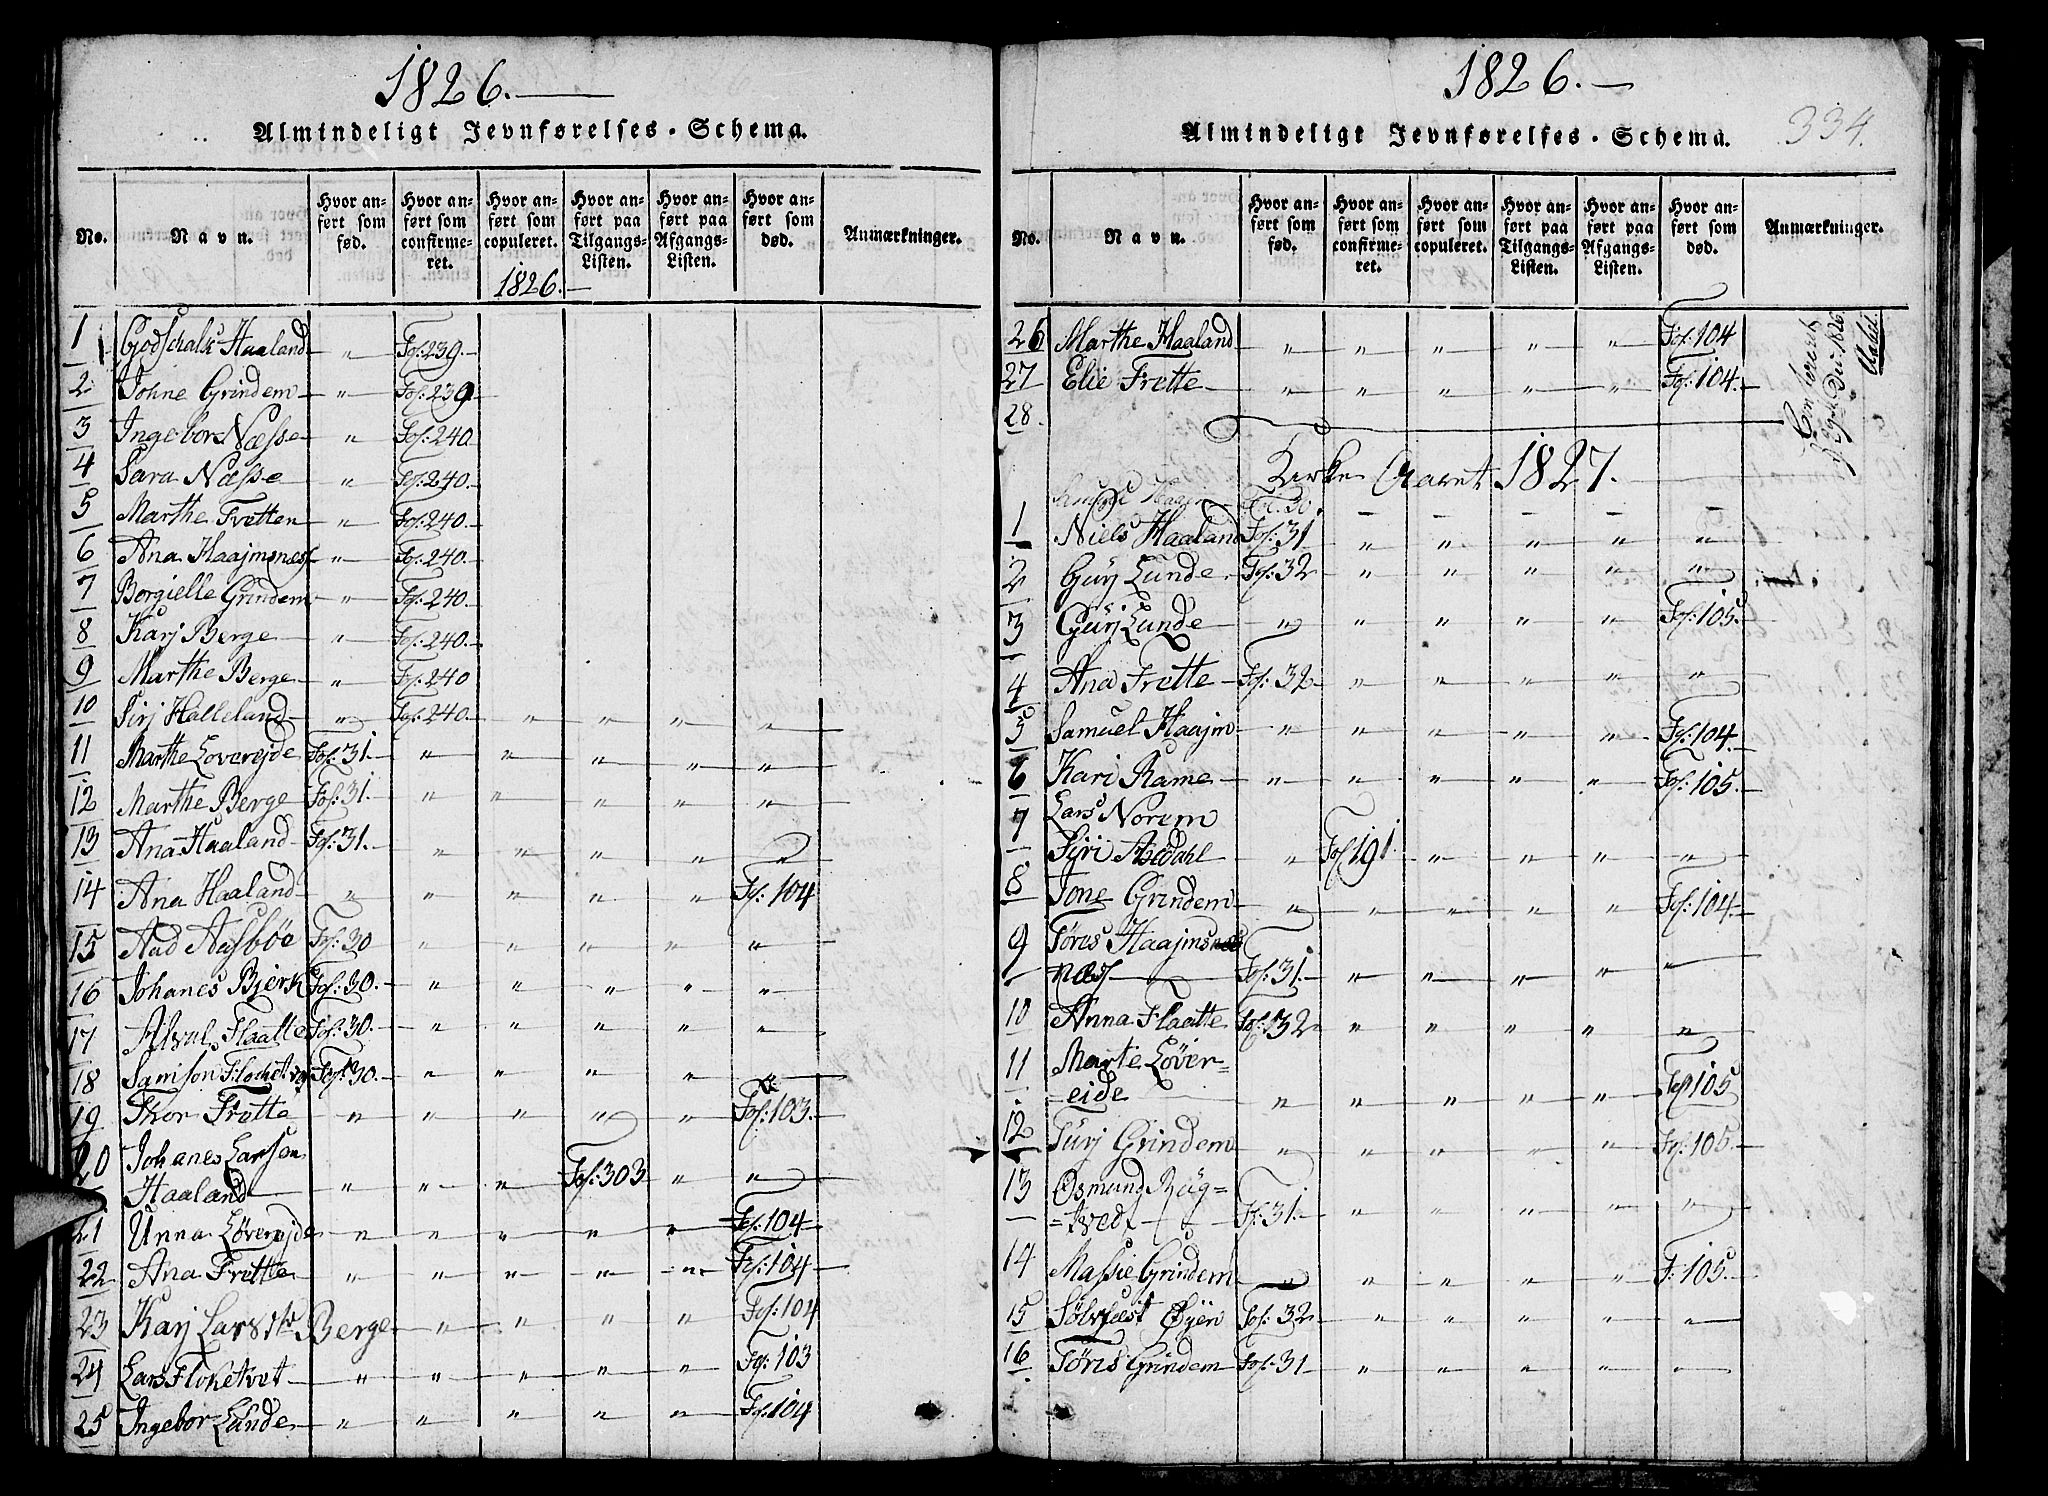 1826.
Almindeligt Jevnførelses-Schema.
No.
Navn.
Hvor anført som fød.
Hvor anført som confirmeret.
Hvor anført som copuleret.
Hvor anført paa Tilgangs-Listen.
Hvor anført paa Afgangs-Listen.
Hvor anført som død.
Anmærkninger.
1826.
1 Godschalk Haaland " Fol: 239.
2 Johne Grindem " Fol: 239
3 Ingebor Næsse " Fol: 240
4 Sara Næsse " Fol: 240.
5 Marthe Fretten " Fol: 240.
6 Ana Haajmsnæs " Fol: 240.
7 Borgielle Grindem " Fol: 240.
8 Karj Berge " Fol: 240.
9 Marthe Berge " Fol: 240
10 Sirj Halleland " Fol: 240. " " " "
11 Marthe Løverejde Fol: 31. " " " " "
12 Marthe Berge Fol: 31. " " " " "
13 Ana Haaland Fol: 31. " " " " "
14 Ana Haaland " " " " " Fol: 104
15 Aad Aasbøe Fol: 30 " " " " "
16 Johanes Bjerk Fol: 30. " " " " "
17 Flaatte Fol: 30. " " " " "
18 Samson Fol: 30. " " " " "
19 Thor Frette " " " " " Fol: 103.
20 Johanes Larsen
Haaland " " " Fol: 303 " "
21 Unna Løverejde " " " " " Fol: 104
22 Ana Frette " " " " " Fol: 104
23 Karj Larsdtr Berge " " " " Fol: 104
24 Lars Floketvet " " " " " Fol: 103
25 Ingebor Lunde " " " " " Fol: 104
1826.
334.
Almindeligt Jevnførelses-Schema.
No.
Navn.
Hvor anført som fød.
Hvor anført som confirmeret.
Hvor anført som copuleret.
Hvor anført paa Tilgangs-Listen.
Hvor anført paa Afgangs-Listen.
Hvor anført som død.
Anmærkninger.
26 Marthe Haaland " " " " " Fol: 104
27 Elie Frette " " " " " Fol: 104.
28.
Confereret
Dec: 1826.
Kirke Aaret 1827.
Fol. 30.
1 Niels Haaland Fol: 31 " " " " "
2 Gurj Lunde Fol: 32 " " " " "
3 Gurj Lunde " " " " " Fol: 105.
4 Ana Frette Fol: 32 " " " " "
5 Samuel Haajm " " " " " Fol: 104.
6 Kari Rame " " " " " Fol: 105.
7 Lars Norem
Siri Asedahl " Fol 191 " " " "
8 Jone Grindem " " " " " Fol: 104.
9 Tøres Haajmsnæs
næs Fol: 31. " " " " "
10 Anna Flaatte Fol: 32 " " " " "
11 Marte Løver=
=eide " " " " " Fol 105
12 Turj Grindem " " " " " Fol: 105.
13 Osmund Rüg=
=tved Fol: 31. " " " " "
14 Massie Grindem " " " " " F: 105.
15 Sølvfæst Øyen Fol: 32 " " " " "
16 Tøres Grindem Fol: 31 " " " " "